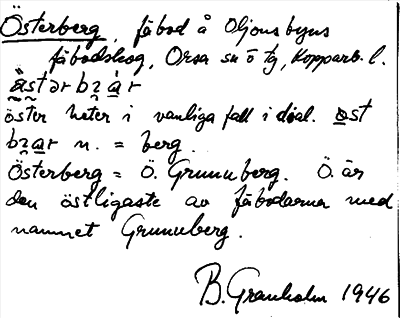 Österberg, fäbod å Oljonsbyns
fäbodskog, Orsa sn o tg, Kopparb. l.
öster heter i vanliga fall i dial. ost
n. = berg.
Österberg = Ö. Grunuberg. Ö. är
den östligaste av fäbodarna med
namnet Grunuberg.
B. Granholm 1946